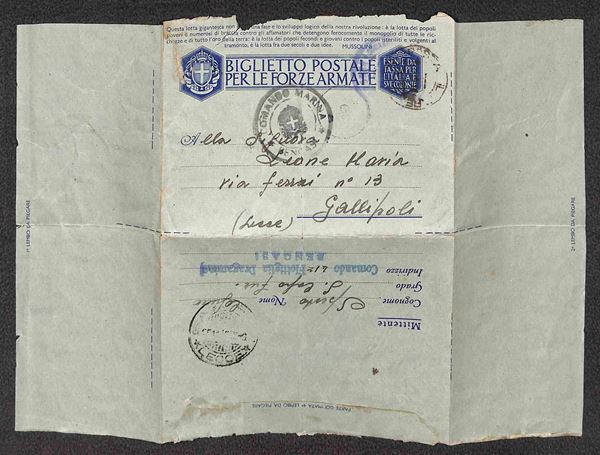 Questa lotta gigantesca non è che una fase e lo sviluppo logico della nostra rivoluzione: è la lotta dei popoli
poveri e numerosi di braccia contro gli affamatori che detengono ferocemente il monopolio di tutte le ric-
chezze e di tutto l'oro della terra: è la lotta dei popoli fecondi e giovani contro i popoli isteriliti e volgenti al
tramonto, è la lotta fra due secoli e due idee.
MUSSOLINI
BIGLIETTO POSTALE
PER LE FORZE ARMATE
ESENTE DA
TASSA PER
L'ITALIA E
SVE COLONIE
COMANDO MARINA
BENGASI
Alla Signora
Leone Maria
via ferrai n° 13
Gallipoli
(Lecce)
1° LEMBO DA PIEGARE
2° LEMBO DA PIEGARE
Mittente
Cognome Nome
Grado
Indirizzo
Comando Flottiglia Dragamine
BENGASI
LECCE
PARTE GOMMATA 4° LEMBO DA PIEGARE